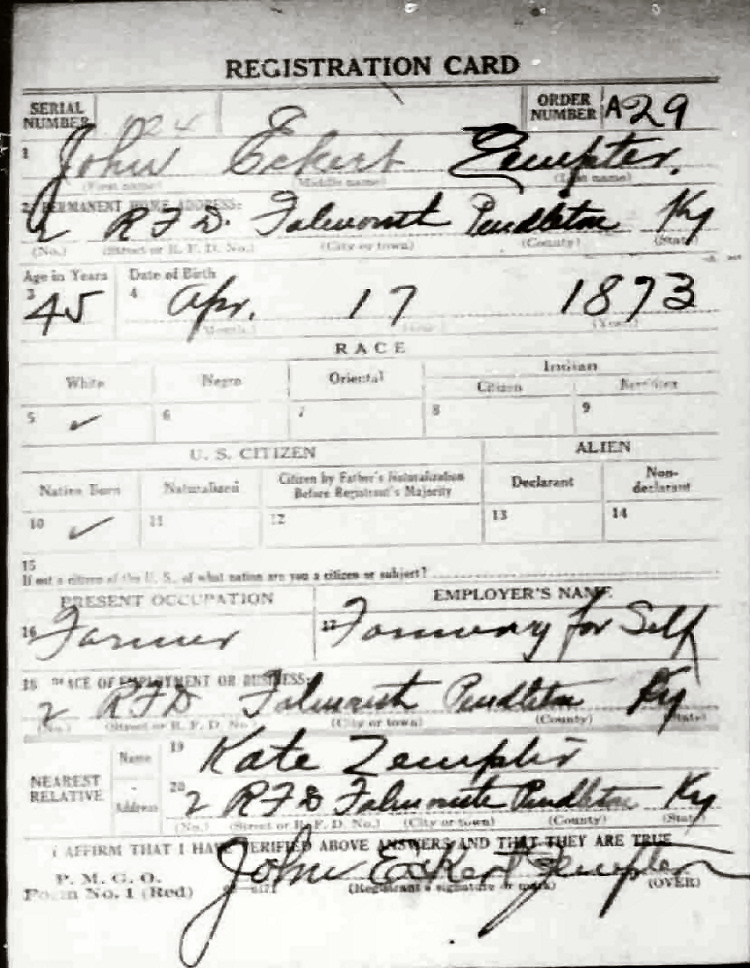 REGISTRATION CARD
SERIAL NUMBER 1724 ORDER NUMBER A29
1 John Eckert Zempter.
(First name) (Middle name) (Last name)
2 PERMANENT HOME ADDRESS:
2 RFD. Falmouth Pendleton Ky
(No.) (Street or R. F. D. No.) (City or town) (County) (State)
Age in Years Date of Birth
3 45 4 Apr. 17 1873
(Month.) (Year.)
RACE
White Negro Oriental Indian
Citizen
5 ✓ 6 7 8 9
U. S. CITIZEN ALIEN
Native Born Naturalized Citizen by Father's Naturalization Before Registrant's Majority Declarant Non-declarant
10 ✓ 11 12 13 14
15
If not a citizen of the U. S., of what nation are you a citizen or subject?
PRESENT OCCUPATION EMPLOYER'S NAME
16 Farmer 17 for Self
18 PLACE OF EMPLOYMENT OR BUSINESS:
2 RFD Falmouth Pendleton Ky
(No.) (Street or R. F. D. No.) (City or town) (County) (State)
NEAREST RELATIVE Name 19 Kate Zempter
Address 20 2 RFD Falmouth Pendleton Ky
(No.) (Street or R. F. D. No.) (City or town) (County) (State)
I AFFIRM THAT I HAVE VERIFIED ABOVE ANSWERS AND THAT THEY ARE TRUE
P. M. G. O.
Form No. 1 (Red) John Eckert Zempter
(Registrant's signature or mark) (OVER)